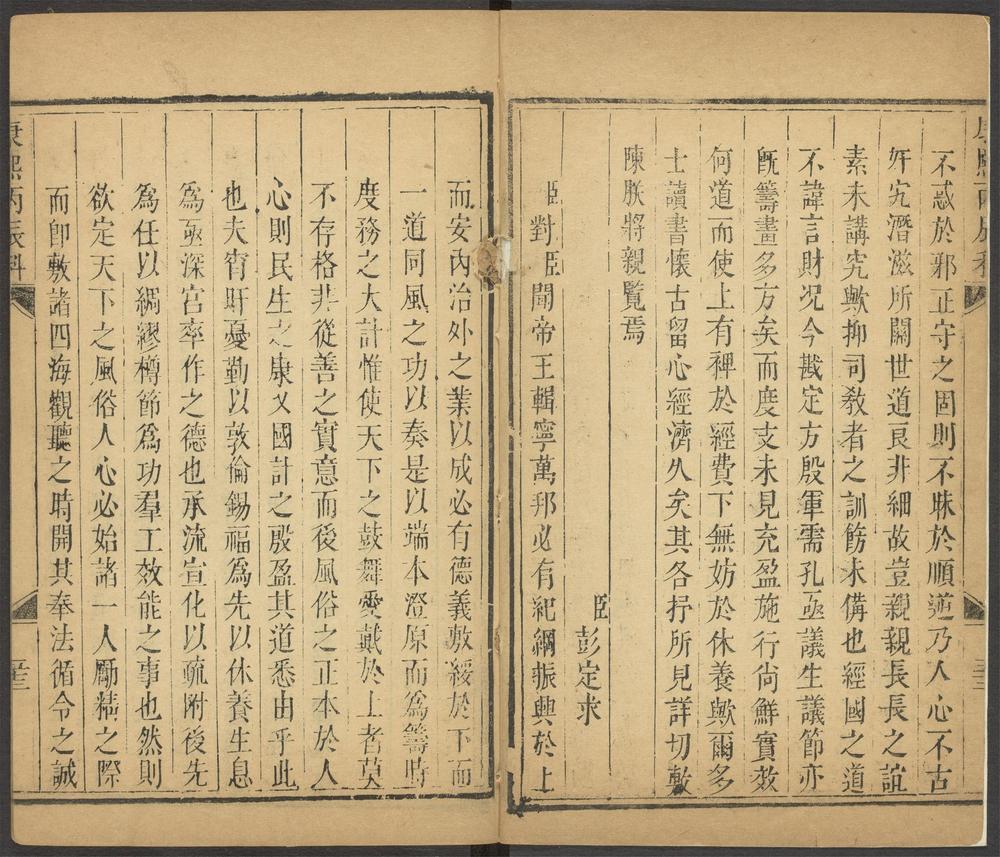 不惑於邪正守之固則不昧於順逆乃人心不古
奸宄潛滋所關世道良非細故豈親親長長之誼
素未講究歟抑司教者之訓飭未備也經國之道
不諱言財況今戡定方殷軍需孔亟議生議節亦
旣籌畫多方矣而度支未見充盈施行尙鮮實效
何道而使上有裨於經費下無妨於休養歟爾多
士讀書懷古留心經濟久矣其各抒所見詳切敷
陳朕將親覽焉
臣彭定求
臣對臣聞帝王輯寧萬邦必有紀綱振興於上
而安內治外之業以成必有德義敷綏於下而
一道同風之功以奏是以端本澄原而爲籌時
度務之大計惟使天下之鼓舞愛戴於上者莫
不存格非從善之實意而後風俗之正本於人
心則民生之康乂國計之殷盈其道悉由乎此
也夫宵旰憂勤以敦倫錫福爲先以休養生息
爲亟深宮率作之德也承流宣化以疏附後先
爲任以綢繆樽節爲功羣工效能之事也然則
欲定天下之風俗人心必始諸一人勵精之際
而卽敷諸四海觀聽之時開其奉法循令之誠
康熙丙辰科